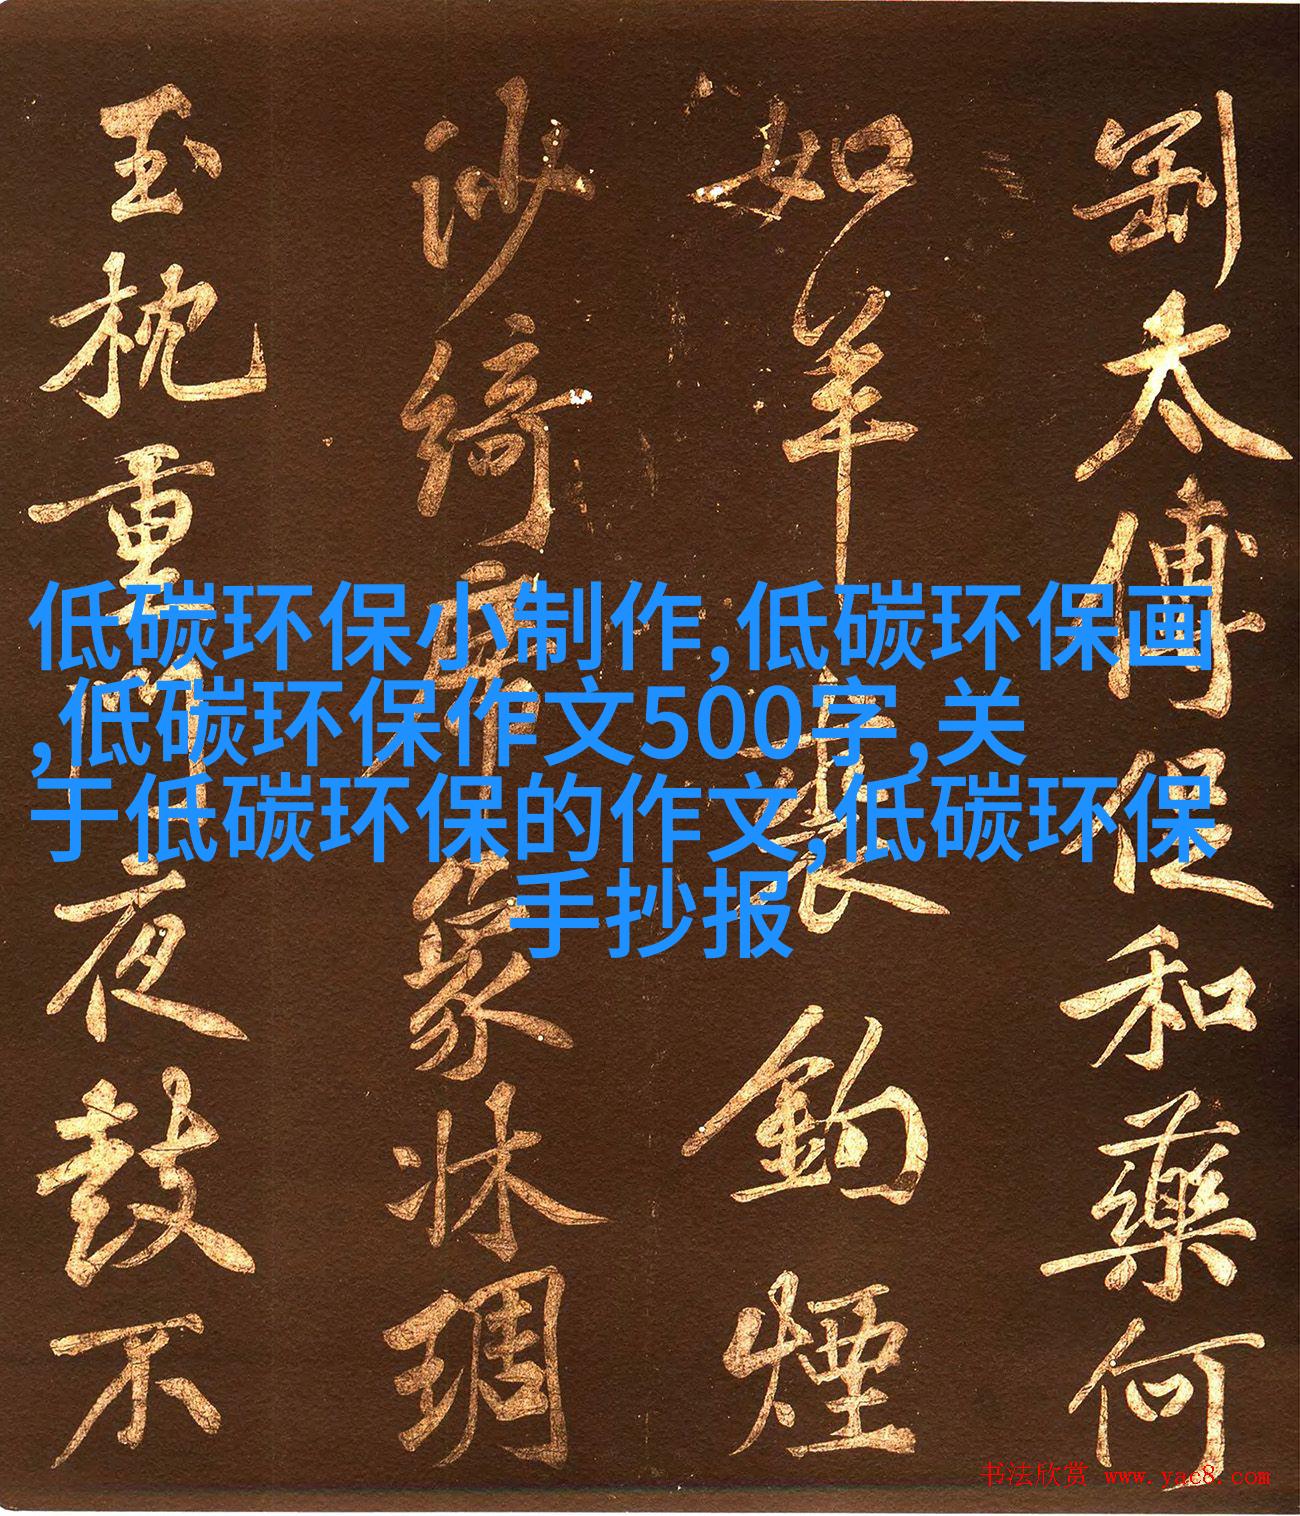 劉太傅促和藥何
如羊裘釣煙
沙綺席象牀琱
玉枕重門夜鼓不
低碳环保小制作,低碳环保画
,低碳环保作文500字,关
于低碳环保的作文,低碳环保
手抄报
书法欣赏 www.yac8.com